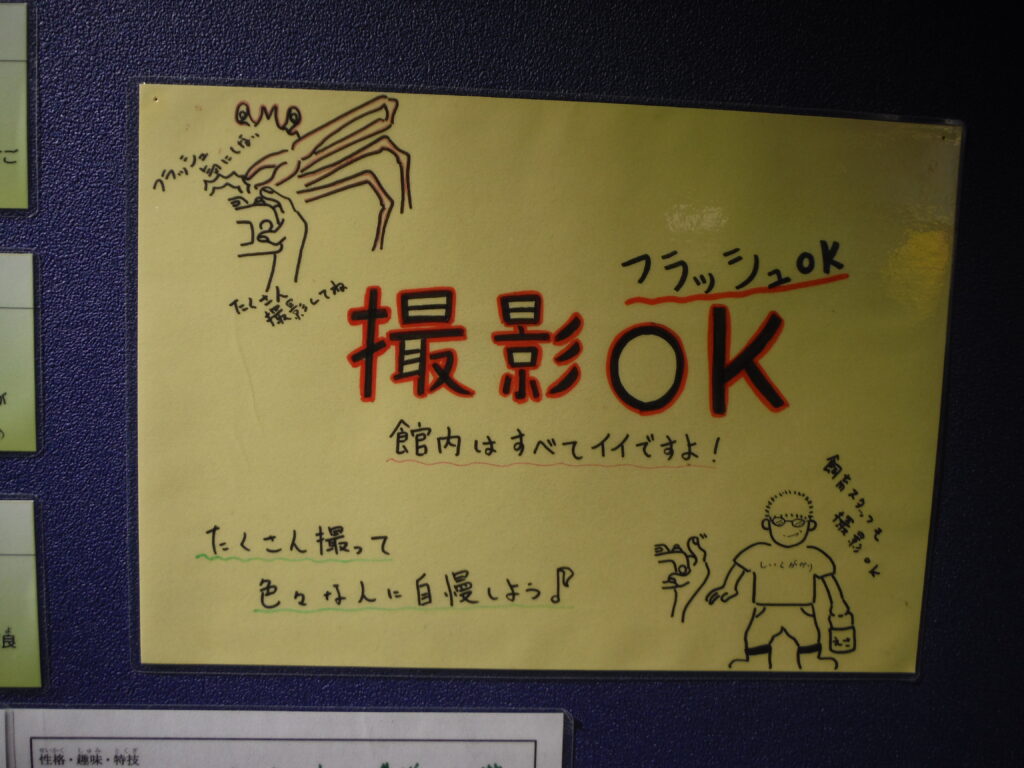 フラッシュ
たくさん
撮影してね
フラッシュOK
撮影OK
館内はすべてイイですよ！
たくさん撮って
色々な人に自慢しよう♪
飼育スタッフも
撮影OK
しいくがかり
えさ
ご
が
良
よ
せいかく しゅみ とくぎ
性格・趣味・特技